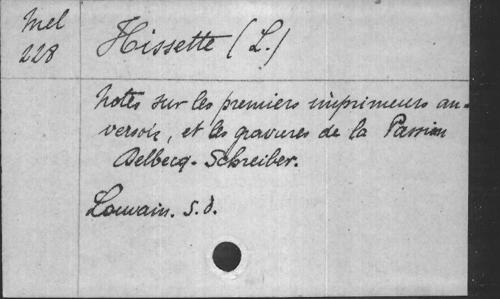 Mel
228
Hissette (L.)
Notes sur les premiers imprimeurs an-
versois, et les gravures de la Passion
Delbecq-Schreiber.
Louvain. s.d.